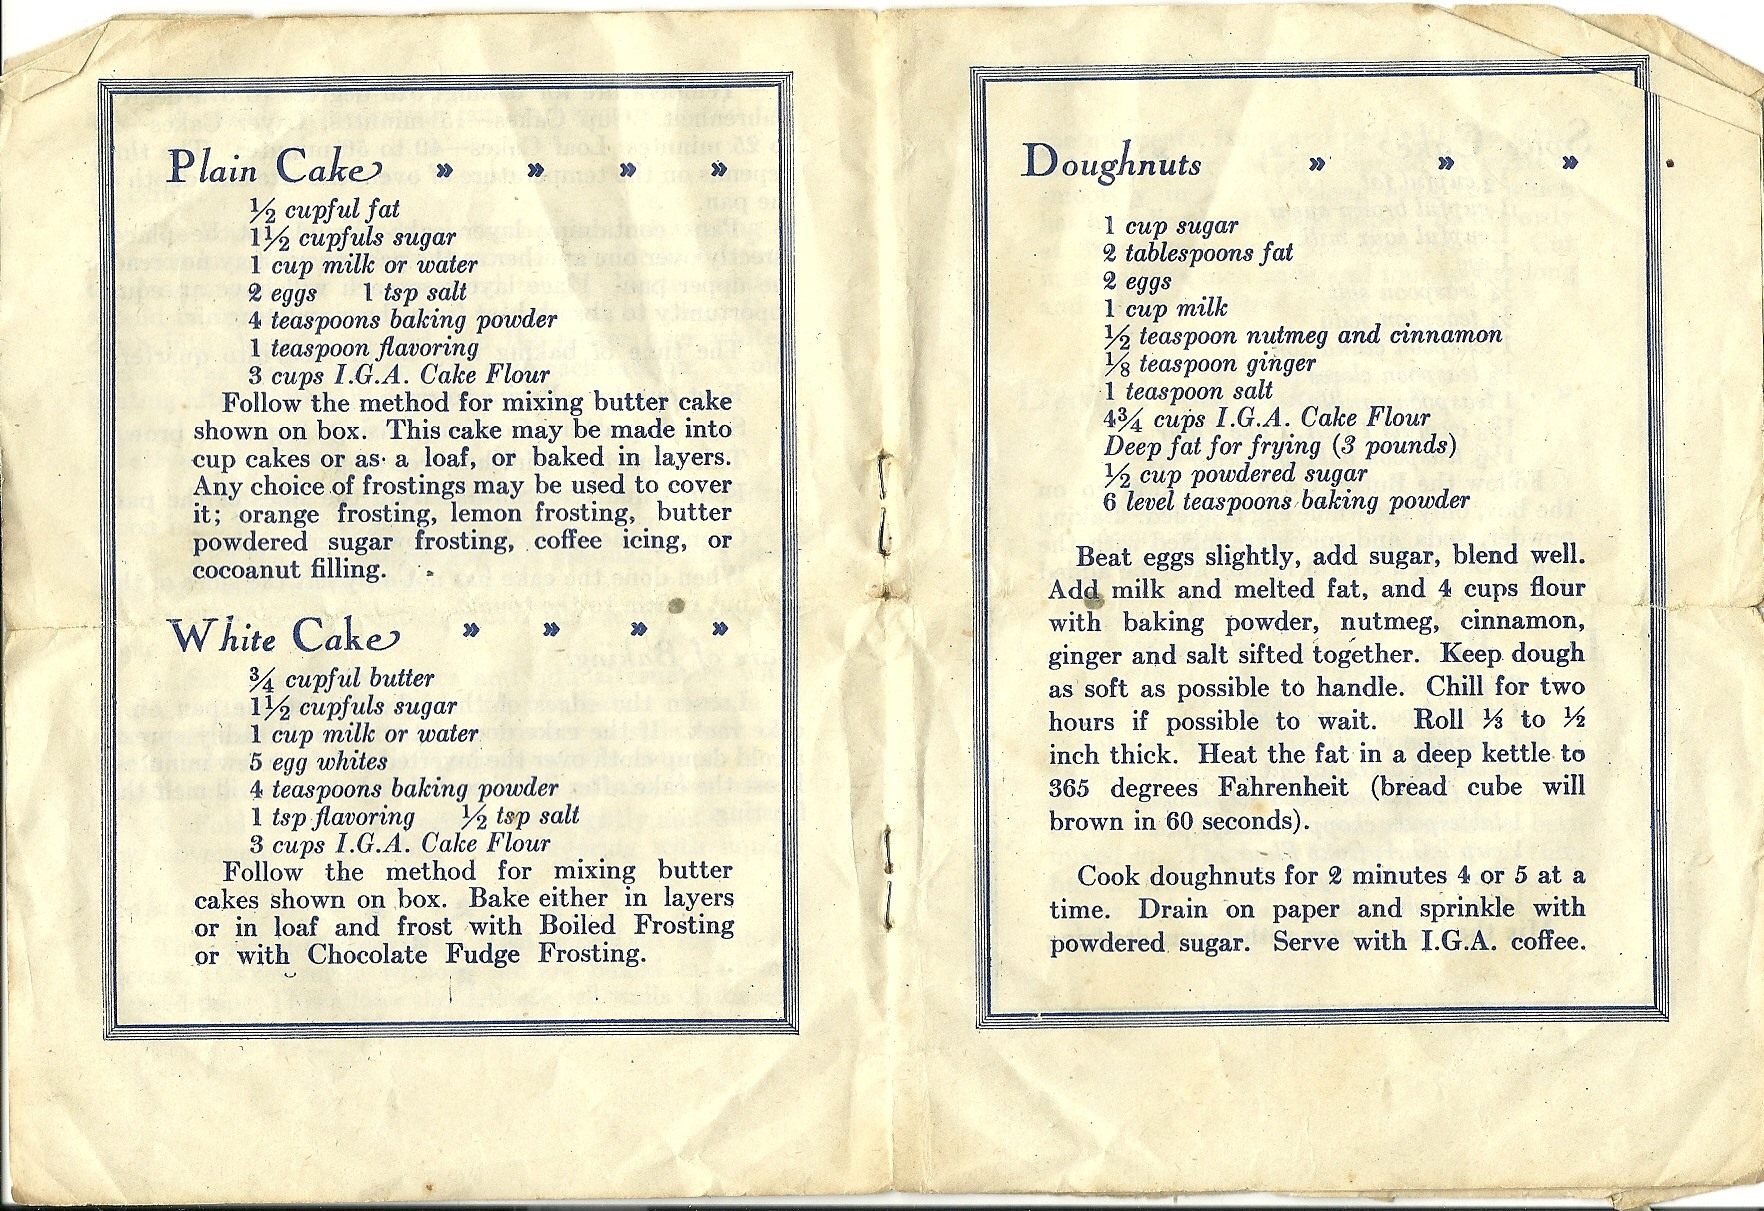 Plain Cake » » » »
½ cupful fat
1½ cupfuls sugar
1 cup milk or water
2 eggs 1 tsp salt
4 teaspoons baking powder
1 teaspoon flavoring
3 cups I.G.A. Cake Flour
Follow the method for mixing butter cake
shown on box. This cake may be made into
cup cakes or as a loaf, or baked in layers.
Any choice of frostings may be used to cover
it; orange frosting, lemon frosting, butter
powdered sugar frosting, coffee icing, or
cocoanut filling.
White Cake » » » »
¾ cupful butter
1½ cupfuls sugar
1 cup milk or water
5 egg whites
4 teaspoons baking powder
1 tsp flavoring ½ tsp salt
3 cups I.G.A. Cake Flour
Follow the method for mixing butter
cakes shown on box. Bake either in layers
or in loaf and frost with Boiled Frosting
or with Chocolate Fudge Frosting.
Doughnuts » » »
1 cup sugar
2 tablespoons fat
2 eggs
1 cup milk
½ teaspoon nutmeg and cinnamon
⅛ teaspoon ginger
1 teaspoon salt
4¾ cups I.G.A. Cake Flour
Deep fat for frying (3 pounds)
½ cup powdered sugar
6 level teaspoons baking powder
Beat eggs slightly, add sugar, blend well.
Add milk and melted fat, and 4 cups flour
with baking powder, nutmeg, cinnamon,
ginger and salt sifted together. Keep dough
as soft as possible to handle. Chill for two
hours if possible to wait. Roll ⅓ to ½
inch thick. Heat the fat in a deep kettle to
365 degrees Fahrenheit (bread cube will
brown in 60 seconds).
Cook doughnuts for 2 minutes 4 or 5 at a
time. Drain on paper and sprinkle with
powdered sugar. Serve with I.G.A. coffee.